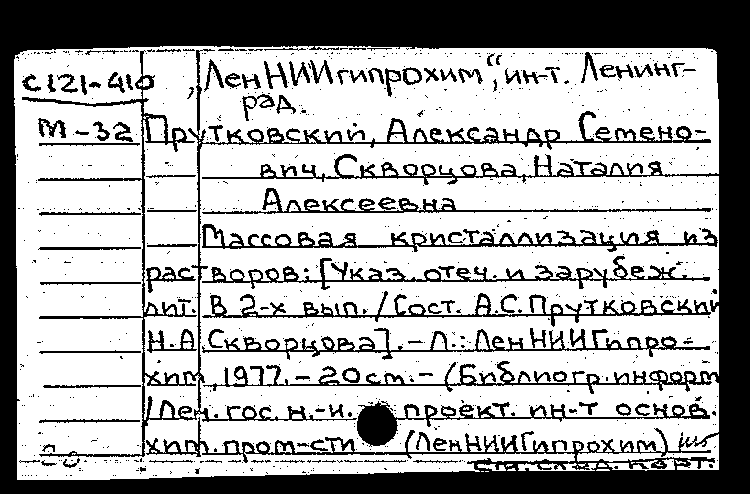 С121-410 „ЛенНИИгипрохим“, ин-т. Ленинг-
рад.
М-32 Прутковский, Александр Семено-
вич, Скворцова, Наталия
Алексеевна
Массовая кристаллизация из
растворов: [Указ. отеч. и зарубеж.
лит. В 2-х вып. / Сост. А.С. Прутковский
Н.А Скворцова]. – Л.: ЛенНИИГипро-
хим, 1977. – 20 см. – (Библиогр. информ
/Лен. гос. н.-и. проект. ин-т основ.
хим. пром-сти (ЛенНИИГипрохим)
см. след. карт.